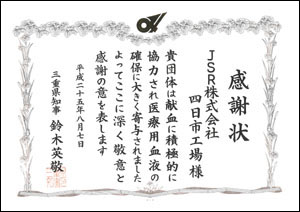 感謝状
JSR株式会社
四日市工場様
貴団体は献血に積極的に
協力され医療用血液の
確保に大きく寄与されました
よってここに深く敬意と
感謝の意を表します
平成二十五年八月七日
三重県知事 鈴木英敬